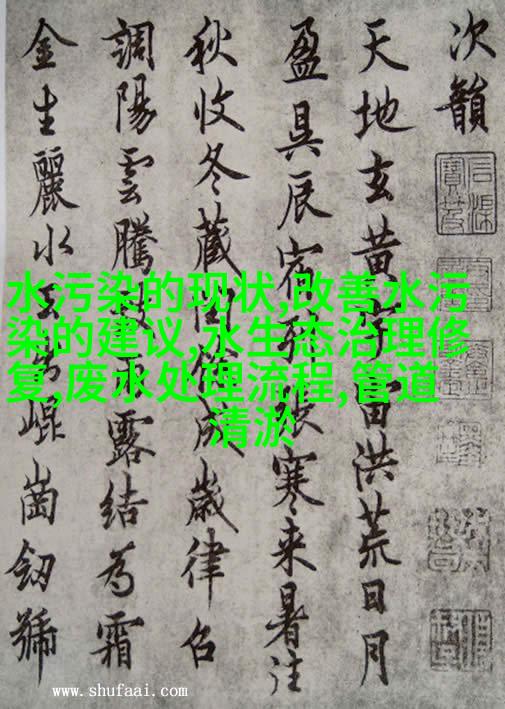 次韻
天地玄黄洪荒日月
盈昃辰宿張寒来暑往
秋收冬藏閏餘成歲律召
調陽雲騰露結為霜
金生麗水玉出崐崗劒號
水污染的现状,改善水污
染的建议,水生态治理修
复,废水处理流程,管道
清淤
www.shufaai.com